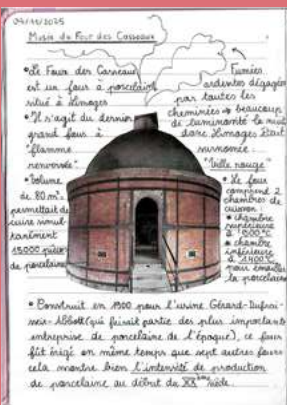 04/11/2025
Musée du Four des Casseaux
• Le Four des Casseaux
est un four à porcelaine
situé à Limoges
• Il s'agit du dernier
grand four à
"flamme
renversée"
• Volume
de 80 m³ →
permettait de
cuire simul-
tanément
15000 pièces
de porcelaine
Fumées
ardentes dégagées
par toutes les
cheminées → beaucoup
de luminosité la nuit
donc Limoges était
surnommée :
"Ville rouge"
• Le four
comprend 2
chambres de
cuisson :
• chambre
supérieure
à
• chambre
inférieure
à 1400°C
pour émailler
la porcelaine
• Construit en 1900 pour l'usine Gérard-Dufrais-
seix-Abbott (qui faisait partie des plus importants
entreprise de porcelaine de l'époque), ce four
fût érigé en même temps que sept autres fours
cela montre bien l'intensité de production
de porcelaine au début du XXème siècle.